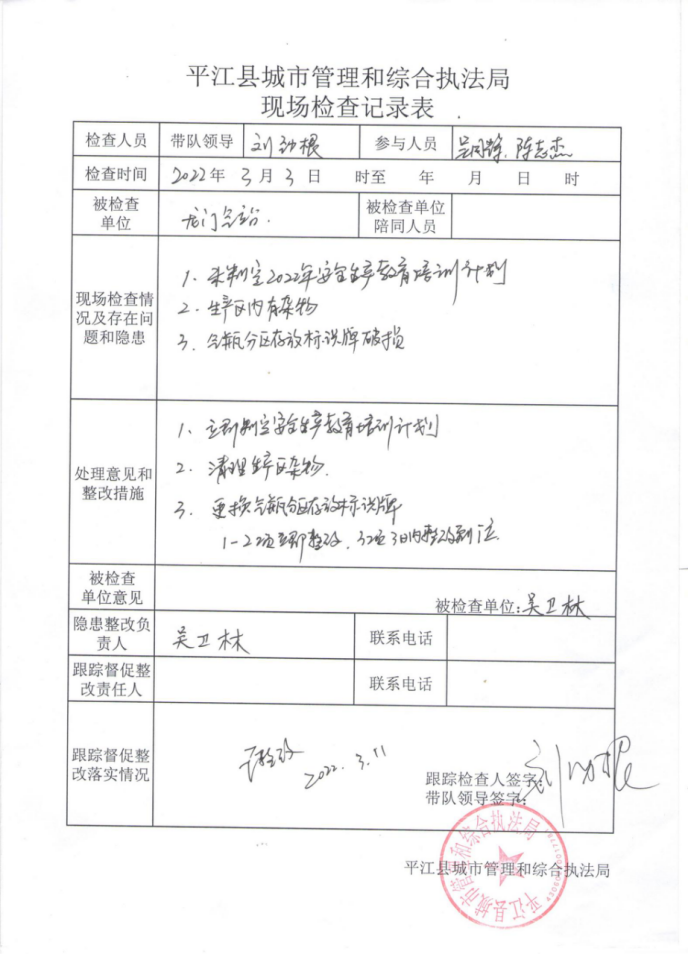 平江县城市管理和综合执法局
现场检查记录表
检查人员 带队领导 刘 根 参与人员 陈志杰
检查时间 2022年 3月3日 时至 年 月 日 时
被检查单位 龙门气站. 被检查单位陪同人员
现场检查情况及存在问题和隐患
1、未制定2022年安全生产教育培训计划
2、生产区内有杂物
3、气瓶分区存放标识牌破损
处理意见和整改措施
1、立即制定安全生产教育培训计划
2、清理生产区杂物.
3、更换气瓶分区存放标识牌
1-2项立即整改，3项3日内整改到位
被检查单位意见 被检查单位:吴卫林
隐患整改负责人 吴卫林 联系电话
跟踪督促整改责任人 联系电话
跟踪督促整改落实情况
已整改 2022.3.11
跟踪检查人签字:
带队领导签字:
平江县城市管理和综合执法局
平江县城市管理和综合执法局